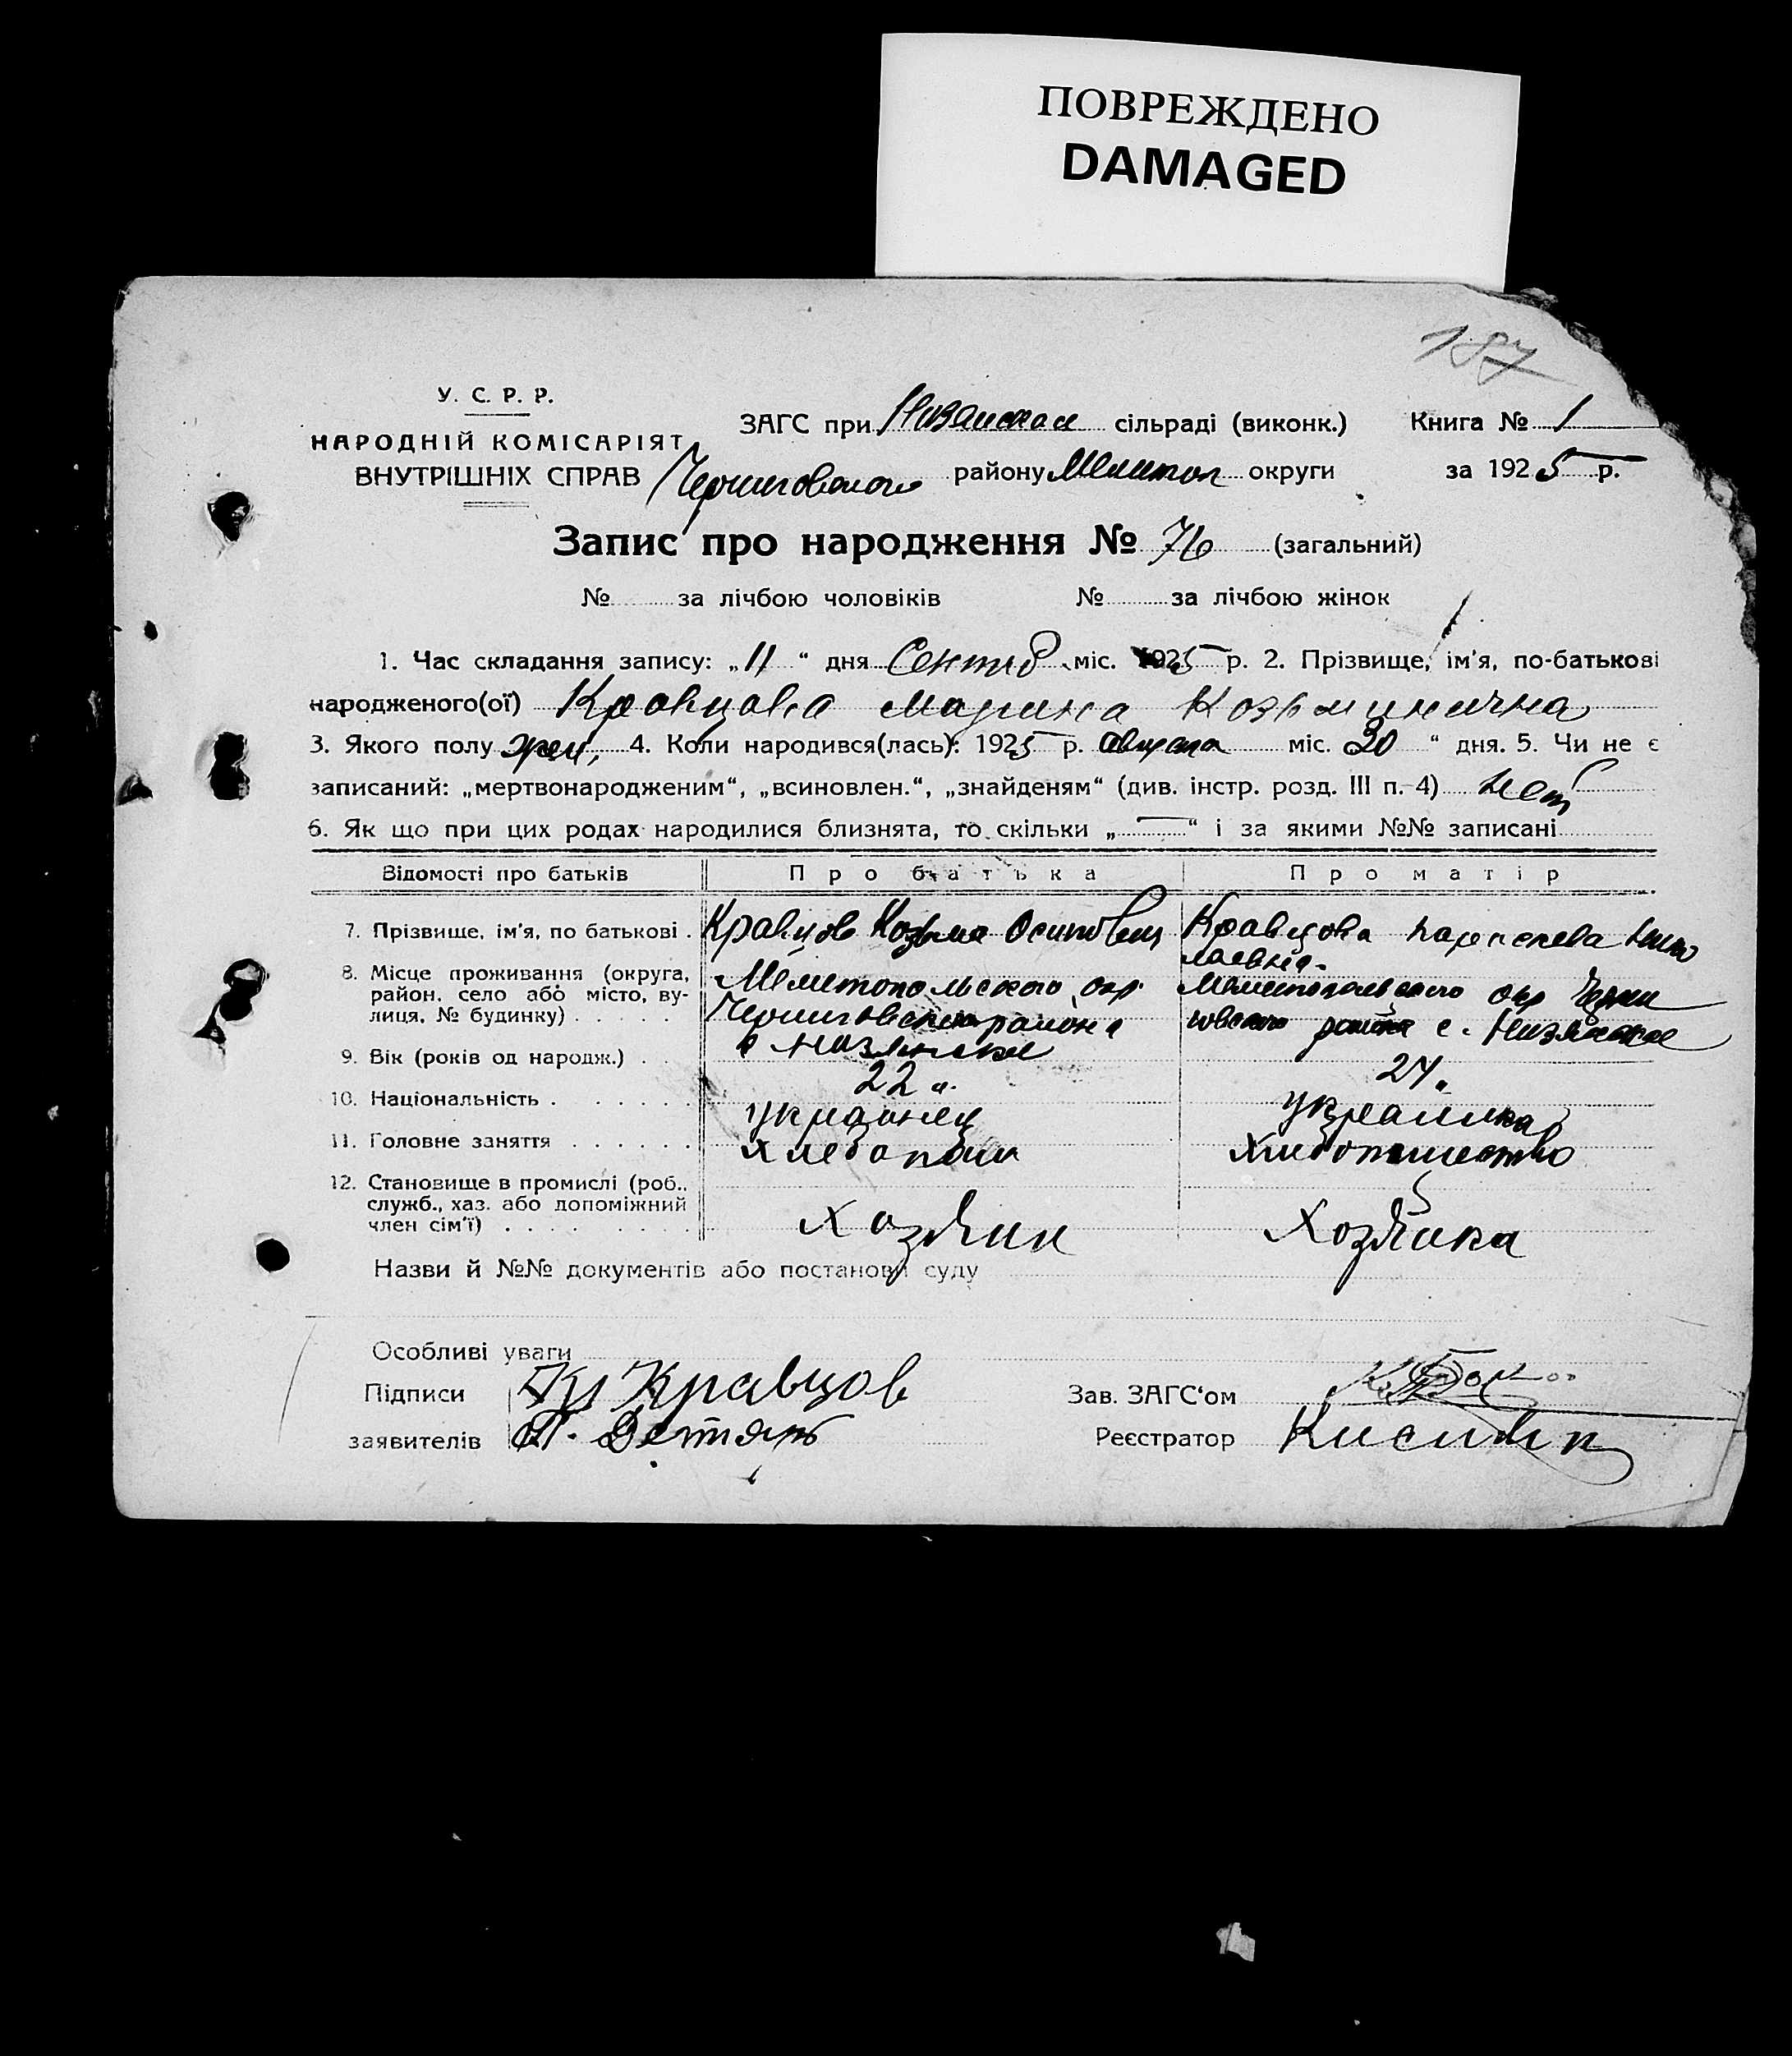 ПОВРЕЖДЕНО
DAMAGED
187
У. С. Р. Р.
НАРОДНІЙ КОМІСАРІЯТ
ВНУТРІШНІХ СПРАВ
ЗАГС при сільраді (виконк.) Книга № 1
Черниговского району Мелитоп округи за 1925 р.
Запис про народження № 76 (загальний)
№ за лічбою чоловіків № за лічбою жінок
1. Час складання запису: „11“ дня Сентяб міс. 1925 р. 2. Прізвище, ім'я, по-батькові
народженого(ої) Кравцова Марина Козьминична
3. Якого полу жен, 4. Коли народився(лась): 1925 р. августа міс. 30 “ дня. 5. Чи не є
записаний: „мертвонародженим“, „всиновлен.“, „знайденям“ (див. інстр. розд. III п. 4) нет
6. Як що при цих родах народилися близнята, то скільки „—“ і за якими №№ записані
Відомості про батьків Про батька Про матір
7. Прізвище, ім'я, по батькові . Кравцов Козьма Осипович Кравцова Нико
лаевна.
8. Місце проживання (округа, район, село або місто, вулиця, № будинку) . . . . . Мелитопольского окр. Черниговского района Мелитопольского окр Черни
говского района с. Низянское
9. Вік (років од народж.) . . 22 24
10. Національність . . . . . . украинец украинка
11. Головне заняття . . . . . . хлебопаш хлебопашество
12. Становище в промислі (роб.,
служб., хаз. або допоміжний
член сім'ї) . . . . . . . . Хозяин Хозяйка
Назви й №№ документів або постанови суду
Особливі уваги
Підписи Кравцов Зав. ЗАГС'ом
заявителів Дегтярь Реєстратор